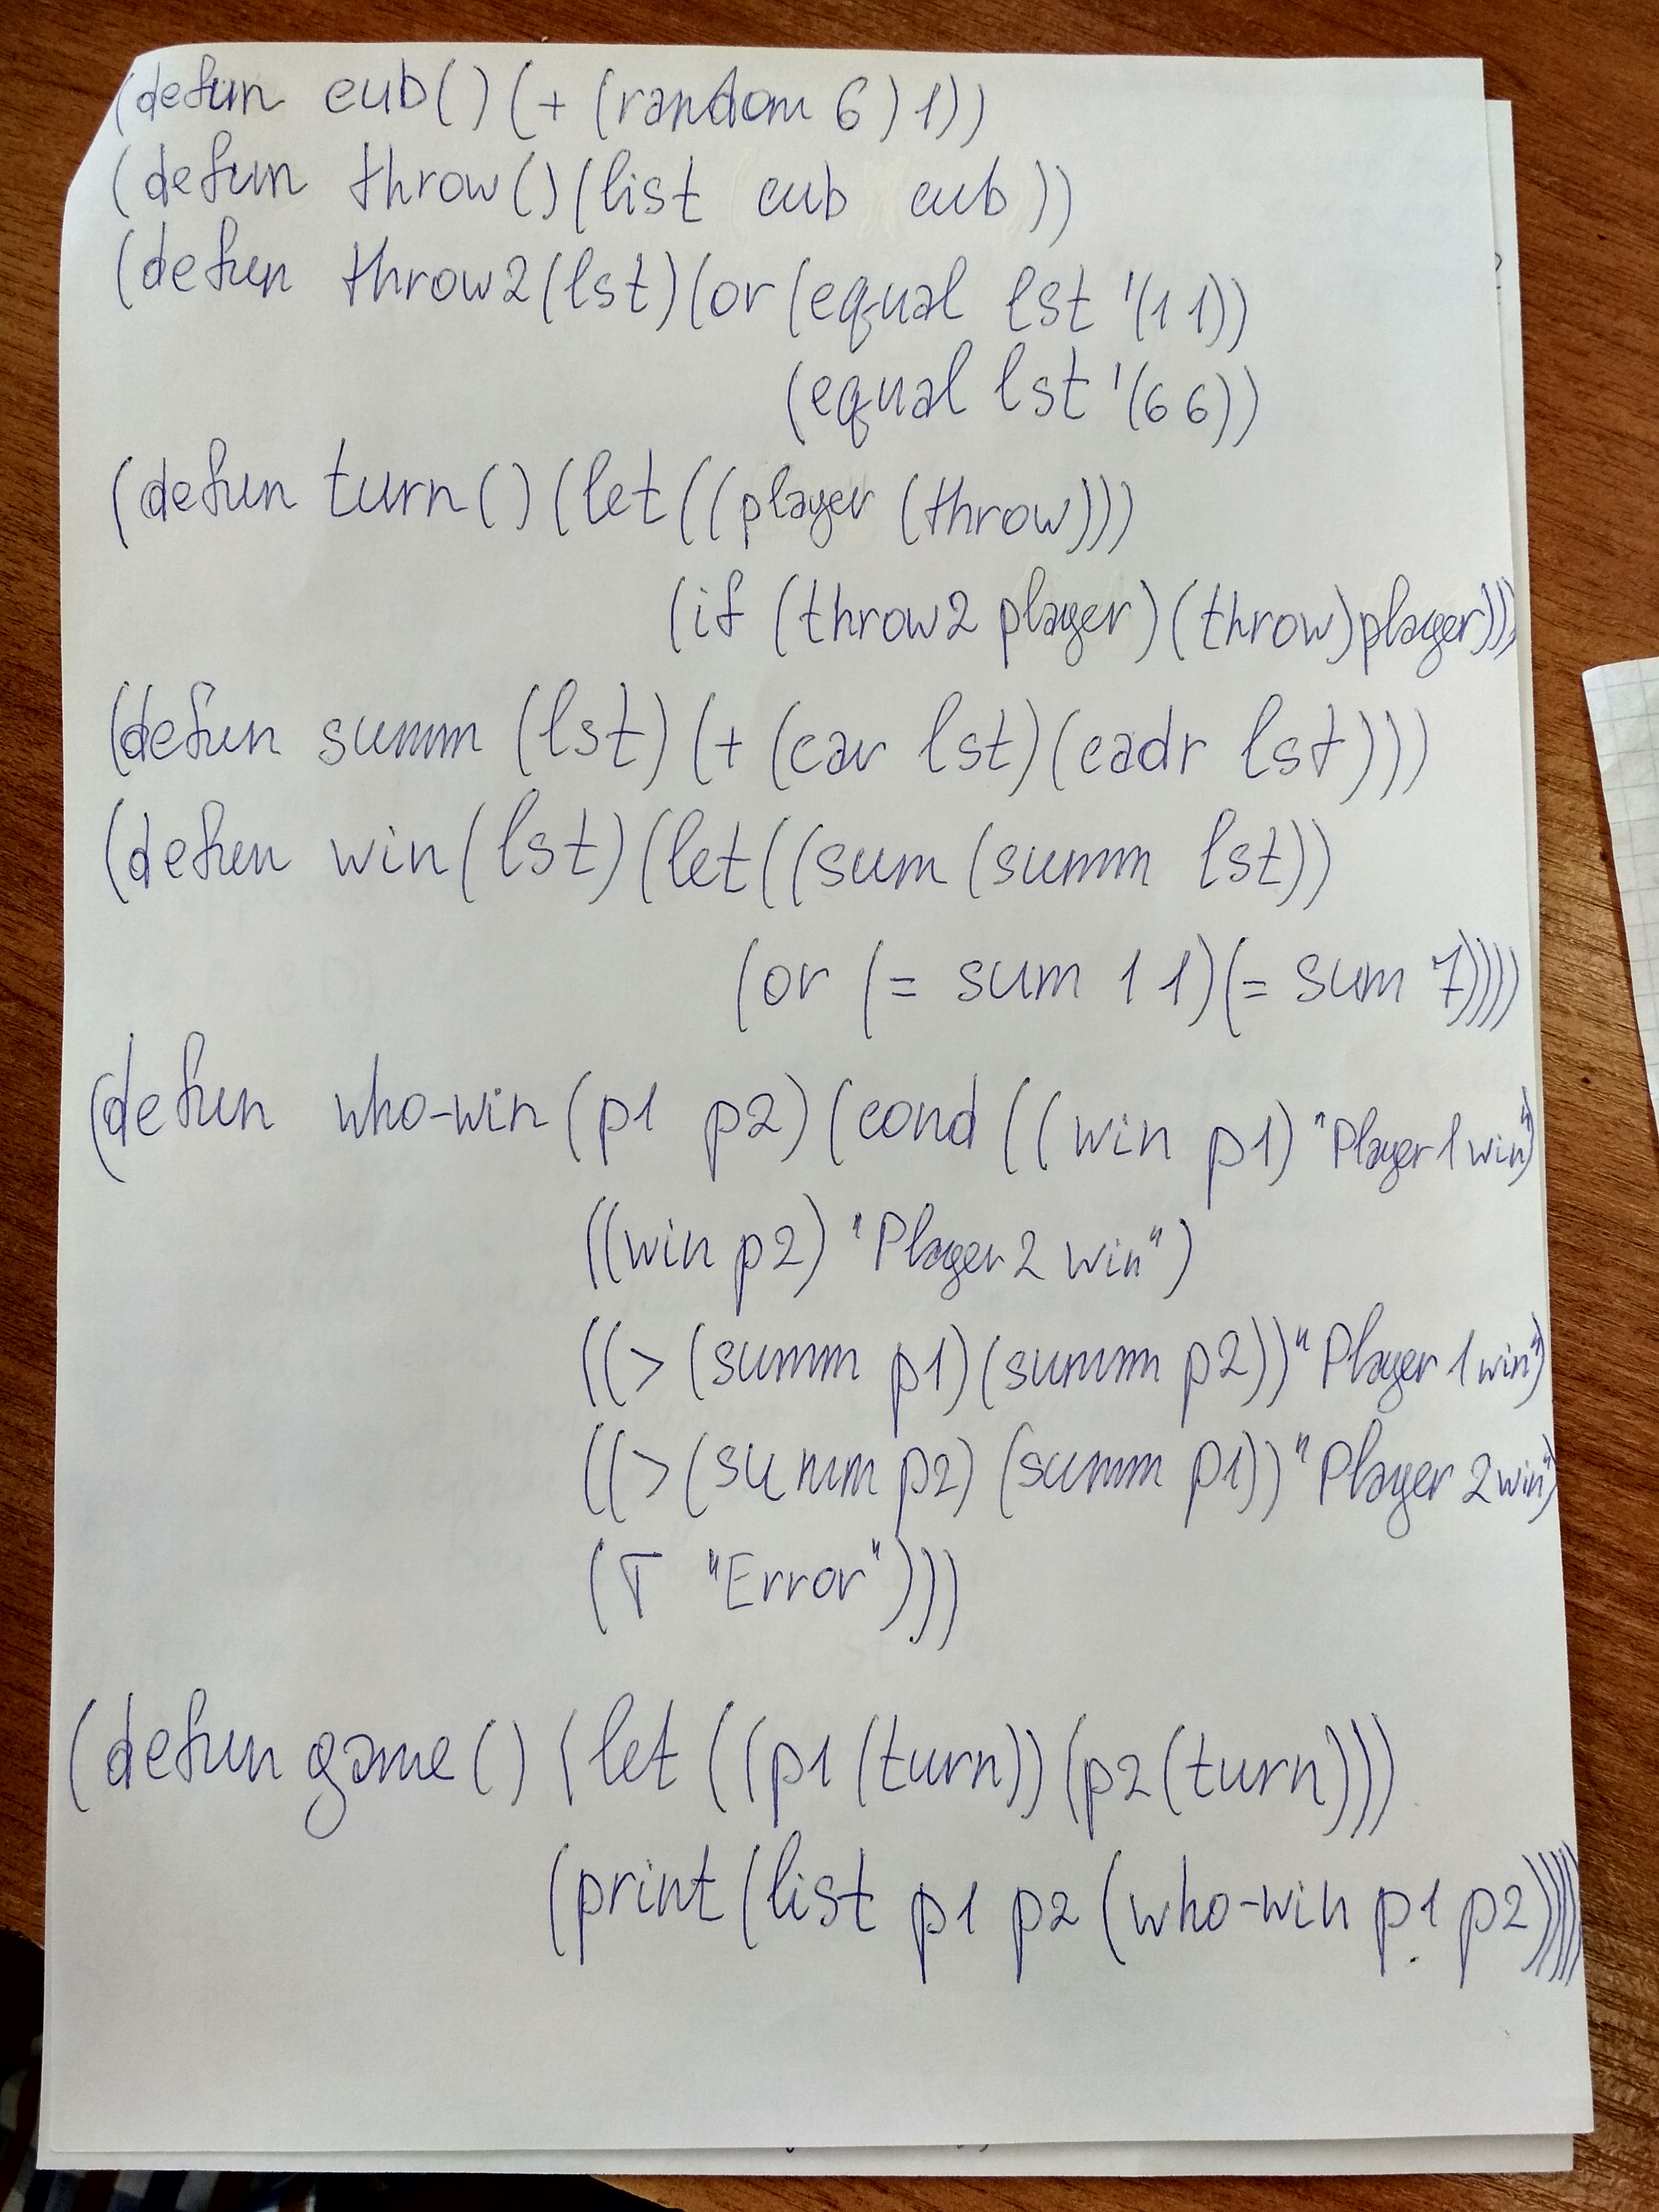 (defun cub()(+ (random 6) 1))
(defun throw()(list cub cub))
(defun throw2(lst)(or(equal lst '(1 1))
(equal lst '(6 6))
(defun turn()(let((player (throw)))
(if (throw2 player)(throw)player)))
(defun summ (lst)(+ (car lst)(cadr lst)))
(defun win(lst)(let((sum(summ lst))
(or (= sum 11)(= sum 7))))
(defun who-win(p1 p2)(cond((win p1)"Player1win")
((win p2)"Player2 win")
((>(summ p1)(summ p2))"Player1win")
((>(summ p2)(summ p1))"Player2win")
(T "Error")))
(defun game()(let((p1(turn))(p2(turn)))
(print(list p1 p2(who-win p1 p2)))))